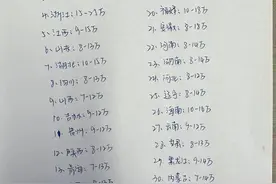 4.浙江: 13-23万
5、江西: 9-13万
6、山西: 8-13万
7、湖北: 10-15万
8、四川: 8-13万
9、山西: 7-12万
10、吉林: 9-12万
11、贵州: 9-12万
12、陕西: 8-13万
13、青海: 7-12万
20、福建: 10-18万
21、安徽: 8-12万
22、河南: 8-14万
23、湖南: 8-14万
24、河北: 8-12万
25、辽宁: 8-12万
26、海南: 10-16万
27、云南: 9-13万
28、甘肃: 8-12万
29、黑龙江: 9-14万
30、内蒙古: 7-14万